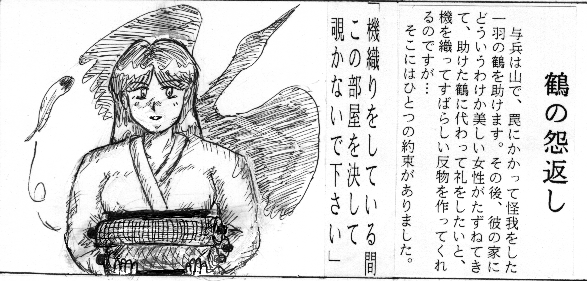 鶴の怨返し
与兵は山で、罠にかかって怪我をした
一羽の鶴を助けます。その後、彼の家に
どういうわけか美しい女性がたずねてき
て、助けた鶴に代わって礼をしたいと、
機を織ってすばらしい反物を作ってくれ
るのですが…
そこにはひとつの約束がありました。
「機織りをしている間
この部屋を決して
覗かないで下さい」